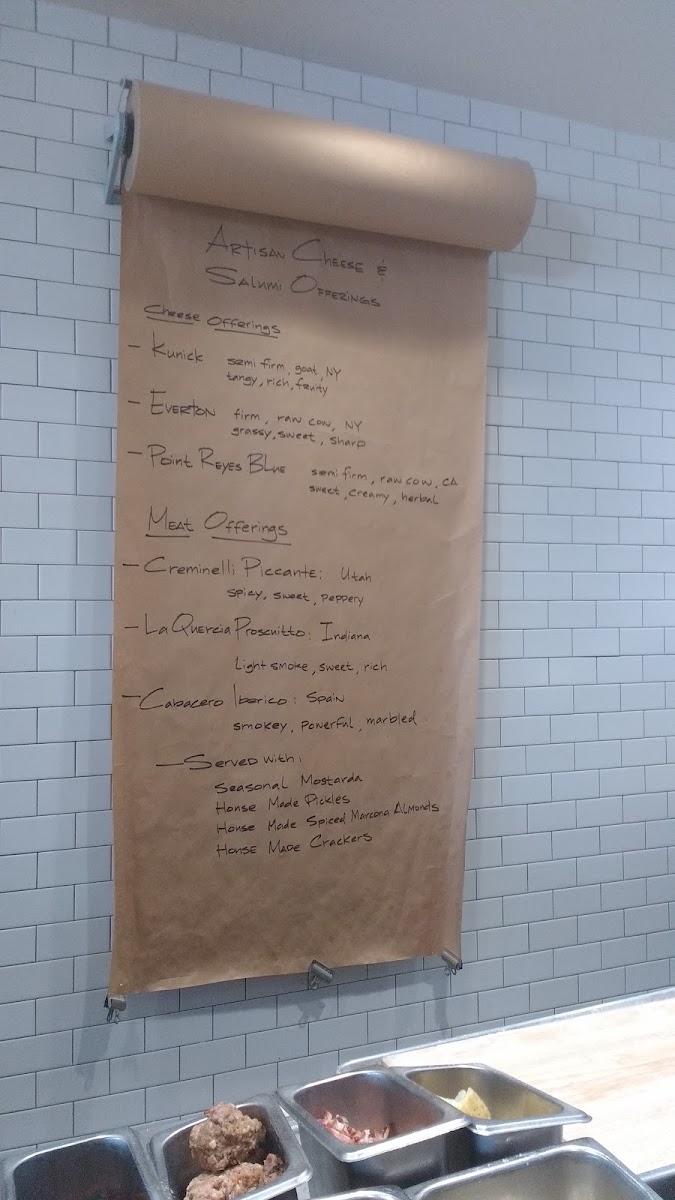 Artisan Cheese &
Salumi Offerings
Cheese Offerings
- Kunick semi firm, goat, NY
tangy, rich, fruity
- Everton firm, raw cow, NY
grassy, sweet, sharp
- Point Reyes Blue semi firm, raw cow, CA
sweet, creamy, herbal
Meat Offerings
- Creminelli Piccante: Utah
spicy, sweet, peppery
- La Quercia Proscuitto: Indiana
Light smoke, sweet, rich
- Cabacero Iberico: Spain
smokey, powerful, marbled
- Served with:
Seasonal Mostarda
House Made Pickles
House Made Spiced Marcona Almonds
House Made Crackers